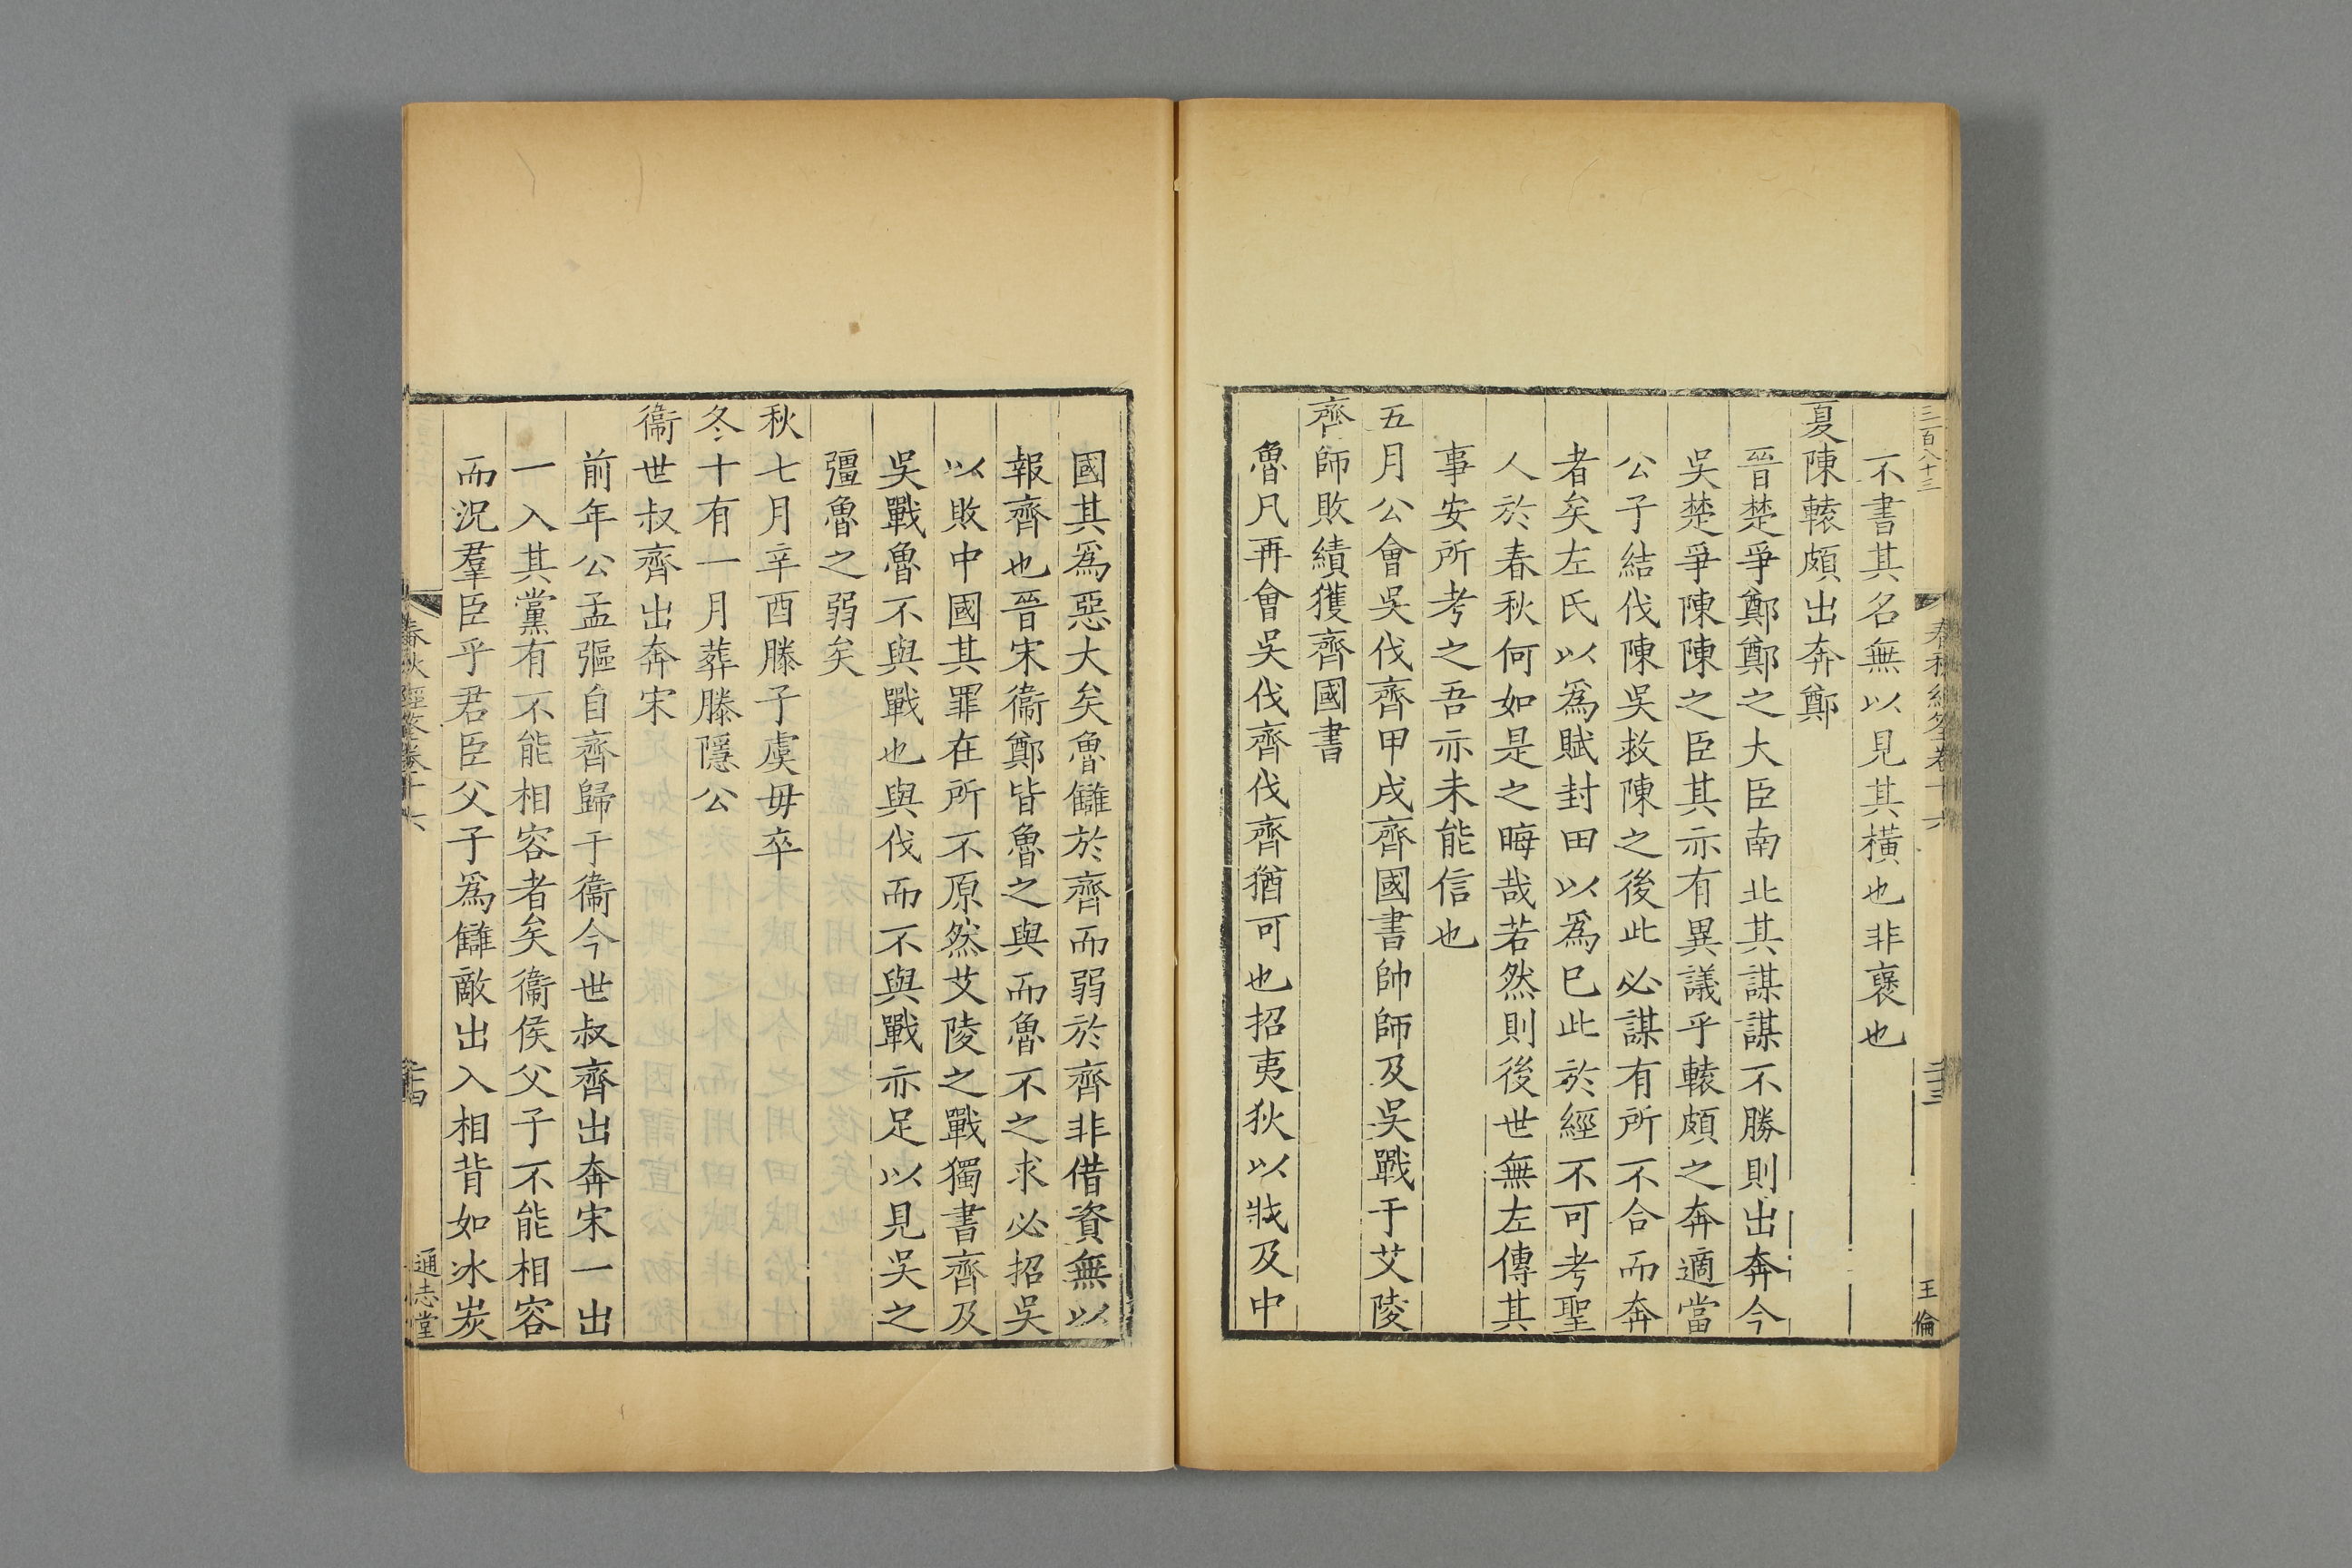 三百八十三
春秋經筌卷十六
二十三
王倫
不書其名無以見其橫也非襃也
夏陳轅頗出奔鄭
晉楚爭鄭鄭之大臣南北其謀謀不勝則出奔今
吳楚爭陳陳之臣其亦有異議乎轅頗之奔適當
公子結伐陳吳救陳之後此必謀有所不合而奔
者矣左氏以爲賦封田以爲已此於經不可考聖
人於春秋何如是之晦哉若然則後世無左傳其
事安所考之吾亦未能信也
五月公會吳伐齊甲戌齊國書帥師及吳戰于艾陵
齊師敗績獲齊國書
魯凡再會吳伐齊伐齊猶可也招夷狄以戕及中
國其爲惡大矣魯讎於齊而弱於齊非借資無以
報齊也晉宋衞鄭皆魯之與而魯不之求必招吳
以敗中國其罪在所不原然艾陵之戰獨書齊及
吳戰魯不與戰也與伐而不與戰亦足以見吳之
彊魯之弱矣
秋七月辛酉滕子虞毋卒
冬十有一月葬滕隱公
衞世叔齊出奔宋
前年公孟彄自齊歸于衞今世叔齊出奔宋一出
一入其黨有不能相容者矣衞侯父子不能相容
而況羣臣乎君臣父子爲讎敵出入相背如冰炭
春秋經筌卷十六
二十四
通志堂